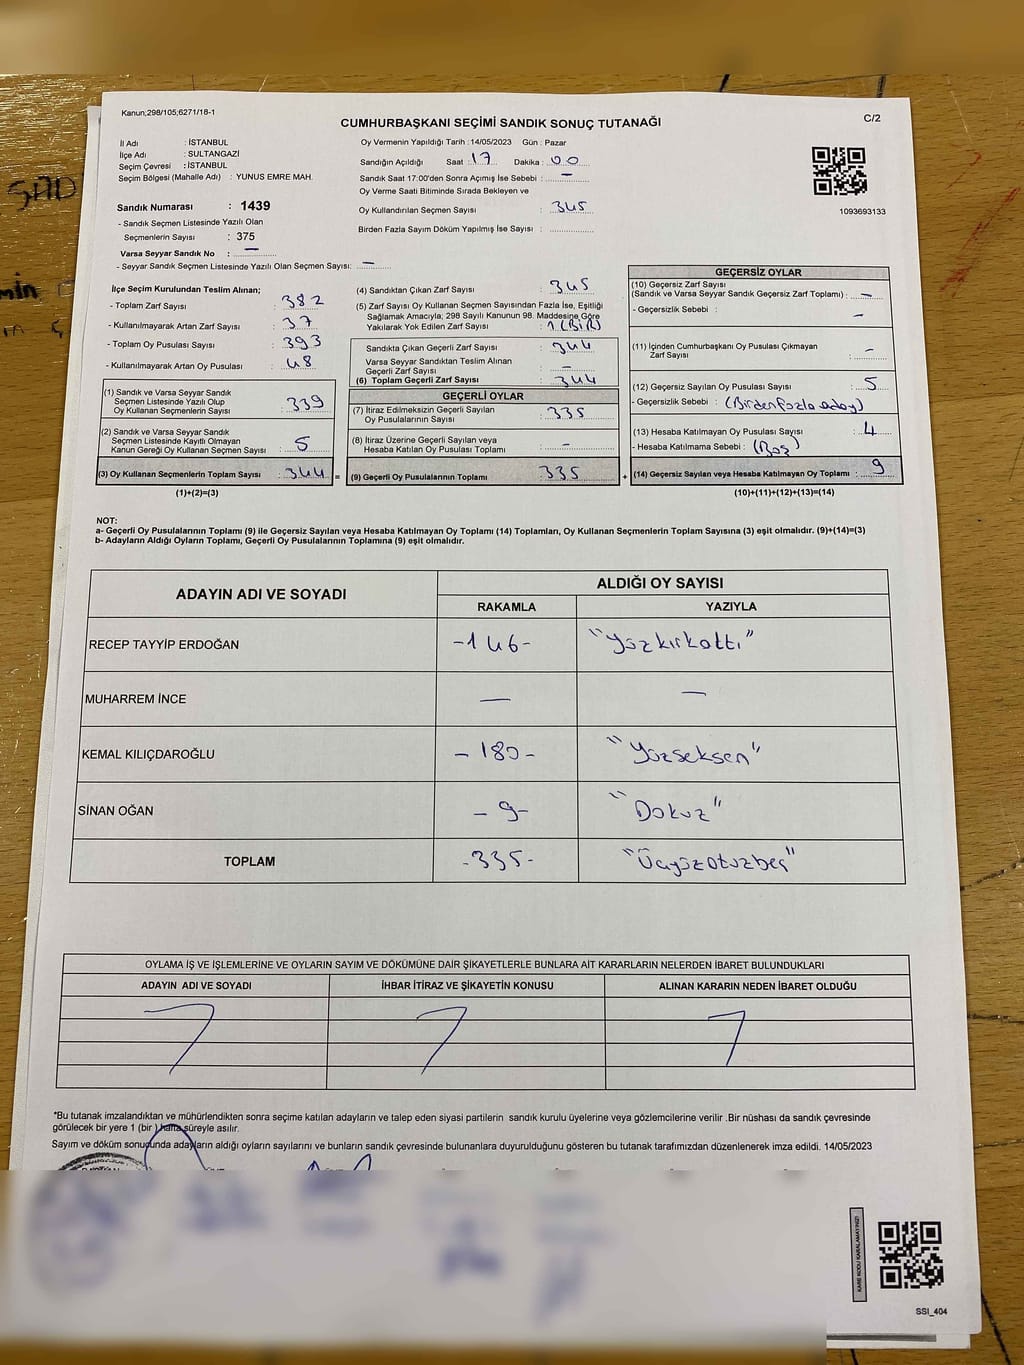 Kanun;298/105;6271/18-1
C/2
CUMHURBAŞKANI SEÇİMİ SANDIK SONUÇ TUTANAĞI
İl Adı : İSTANBUL
İlçe Adı : SULTANGAZİ
Seçim Çevresi : İSTANBUL
Seçim Bölgesi (Mahalle Adı) : YUNUS EMRE MAH.
Sandık Numarası : 1439
- Sandık Seçmen Listesinde Yazılı Olan
Seçmenlerin Sayısı : 375
Varsa Seyyar Sandık No : —
- Seyyar Sandık Seçmen Listesinde Yazılı Olan Seçmen Sayısı: —
Oy Vermenin Yapıldığı Tarih :14/05/2023 Gün : Pazar
Sandığın Açıldığı Saat : 17 Dakika : 00
Sandık Saat 17:00'den Sonra Açımış İse Sebebi : —
Oy Verme Saati Bitiminde Sırada Bekleyen ve
Oy Kullandırılan Seçmen Sayısı : 345
Birden Fazla Sayım Döküm Yapılmış İse Sayısı :
1093693133
İlçe Seçim Kurulundan Teslim Alınan;
- Toplam Zarf Sayısı : 382
- Kullanılmayarak Artan Zarf Sayısı : 37
- Toplam Oy Pusulası Sayısı : 393
- Kullanılmayarak Artan Oy Pusulası : 48
(1) Sandık ve Varsa Seyyar Sandık
Seçmen Listesinde Yazılı Olup
Oy Kullanan Seçmenlerin Sayısı : 339
(2) Sandık ve Varsa Seyyar Sandık
Seçmen Listesinde Kayıtlı Olmayan
Kanun Gereği Oy Kullanan Seçmen Sayısı : 5
(3) Oy Kullanan Seçmenlerin Toplam Sayısı : 344 =
(1)+(2)=(3)
(4) Sandıktan Çıkan Zarf Sayısı : 345
(5) Zarf Sayısı Oy Kullanan Seçmen Sayısından Fazla İse, Eşitliği
Sağlamak Amacıyla; 298 Sayılı Kanunun 98. Maddesine Göre
Yakılarak Yok Edilen Zarf Sayısı : 1 (BİR)
Sandıkta Çıkan Geçerli Zarf Sayısı : 344
Varsa Seyyar Sandıktan Teslim Alınan
Geçerli Zarf Sayısı : —
(6) Toplam Geçerli Zarf Sayısı : 344
GEÇERLİ OYLAR
(7) İtiraz Edilmeksizin Geçerli Sayılan
Oy Pusulalarının Sayısı : 335
(8) İtiraz Üzerine Geçerli Sayılan veya
Hesaba Katılan Oy Pusulası Toplamı : —
(9) Geçerli Oy Pusulalarının Toplamı : 335 +
GEÇERSİZ OYLAR
(10) Geçersiz Zarf Sayısı
(Sandık ve Varsa Seyyar Sandık Geçersiz Zarf Toplamı) : —
- Geçersizlik Sebebi : —
(11) İçinden Cumhurbaşkanı Oy Pusulası Çıkmayan
Zarf Sayısı : —
(12) Geçersiz Sayılan Oy Pusulası Sayısı : 5
- Geçersizlik Sebebi : (Birden fazla aday)
(13) Hesaba Katılmayan Oy Pusulası Sayısı : 4
- Hesaba Katılmama Sebebi : (Boş)
(14) Geçersiz Sayılan veya Hesaba Katılmayan Oy Toplamı : 9
(10)+(11)+(12)+(13)=(14)
NOT:
a- Geçerli Oy Pusulalarının Toplamı (9) ile Geçersiz Sayılan veya Hesaba Katılmayan Oy Toplamı (14) Toplamları, Oy Kullanan Seçmenlerin Toplam Sayısına (3) eşit olmalıdır. (9)+(14)=(3)
b- Adayların Aldığı Oyların Toplamı, Geçerli Oy Pusulalarının Toplamına (9) eşit olmalıdır.
ADAYIN ADI VE SOYADI ALDIĞI OY SAYISI
RAKAMLA YAZIYLA
RECEP TAYYİP ERDOĞAN -146- "Yüzkırkaltı"
MUHARREM İNCE — —
KEMAL KILIÇDAROĞLU -180- "Yüzseksen"
SİNAN OĞAN -9- "Dokuz"
TOPLAM -335- "Üçyüzotuzbeş"
OYLAMA İŞ VE İŞLEMLERİNE VE OYLARIN SAYIM VE DÖKÜMÜNE DAİR ŞİKAYETLERLE BUNLARA AİT KARARLARIN NELERDEN İBARET BULUNDUKLARI
ADAYIN ADI VE SOYADI İHBAR İTİRAZ VE ŞİKAYETİN KONUSU ALINAN KARARIN NEDEN İBARET OLDUĞU
*Bu tutanak imzalandıktan ve mühürlendikten sonra seçime katılan adayların ve talep eden siyasi partilerin sandık kurulu üyelerine veya gözlemcilerine verilir .Bir nüshası da sandık çevresinde
görülecek bir yere 1 (bir ) hafta süreyle asılır.
Sayım ve döküm sonucunda adayların aldığı oyların sayılarını ve bunların sandık çevresinde bulunanlara duyurulduğunu gösteren bu tutanak tarafımızdan düzenlenerek imza edildi. 14/05/2023
KARE KODU KARALAMAYINIZ!
SSI_404